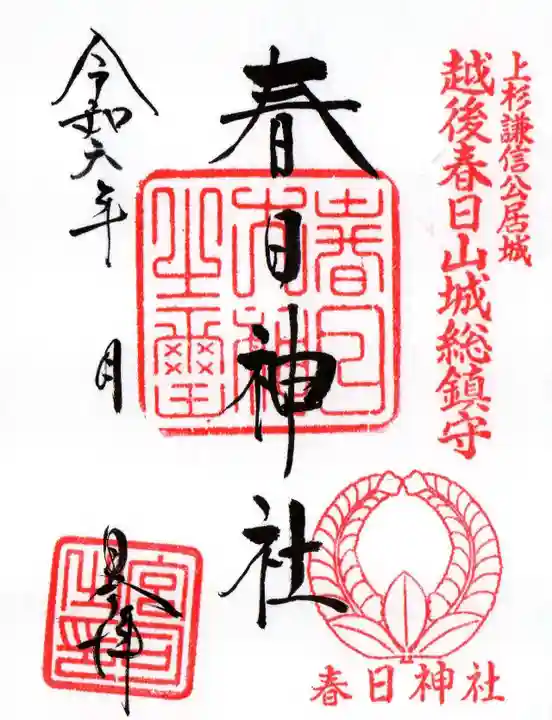 上杉謙信公居城
越後春日山城総鎮守
春日神社
春日大神之璽
春日神社
令和六年
月
日奉拝
宮司之印